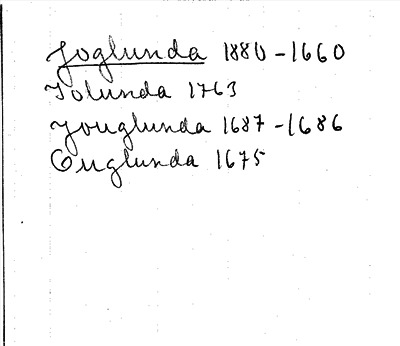 Joglunda 1880-1660
Jolunda 1763
Jouglunda 1687-1686
Ouglunda 1675